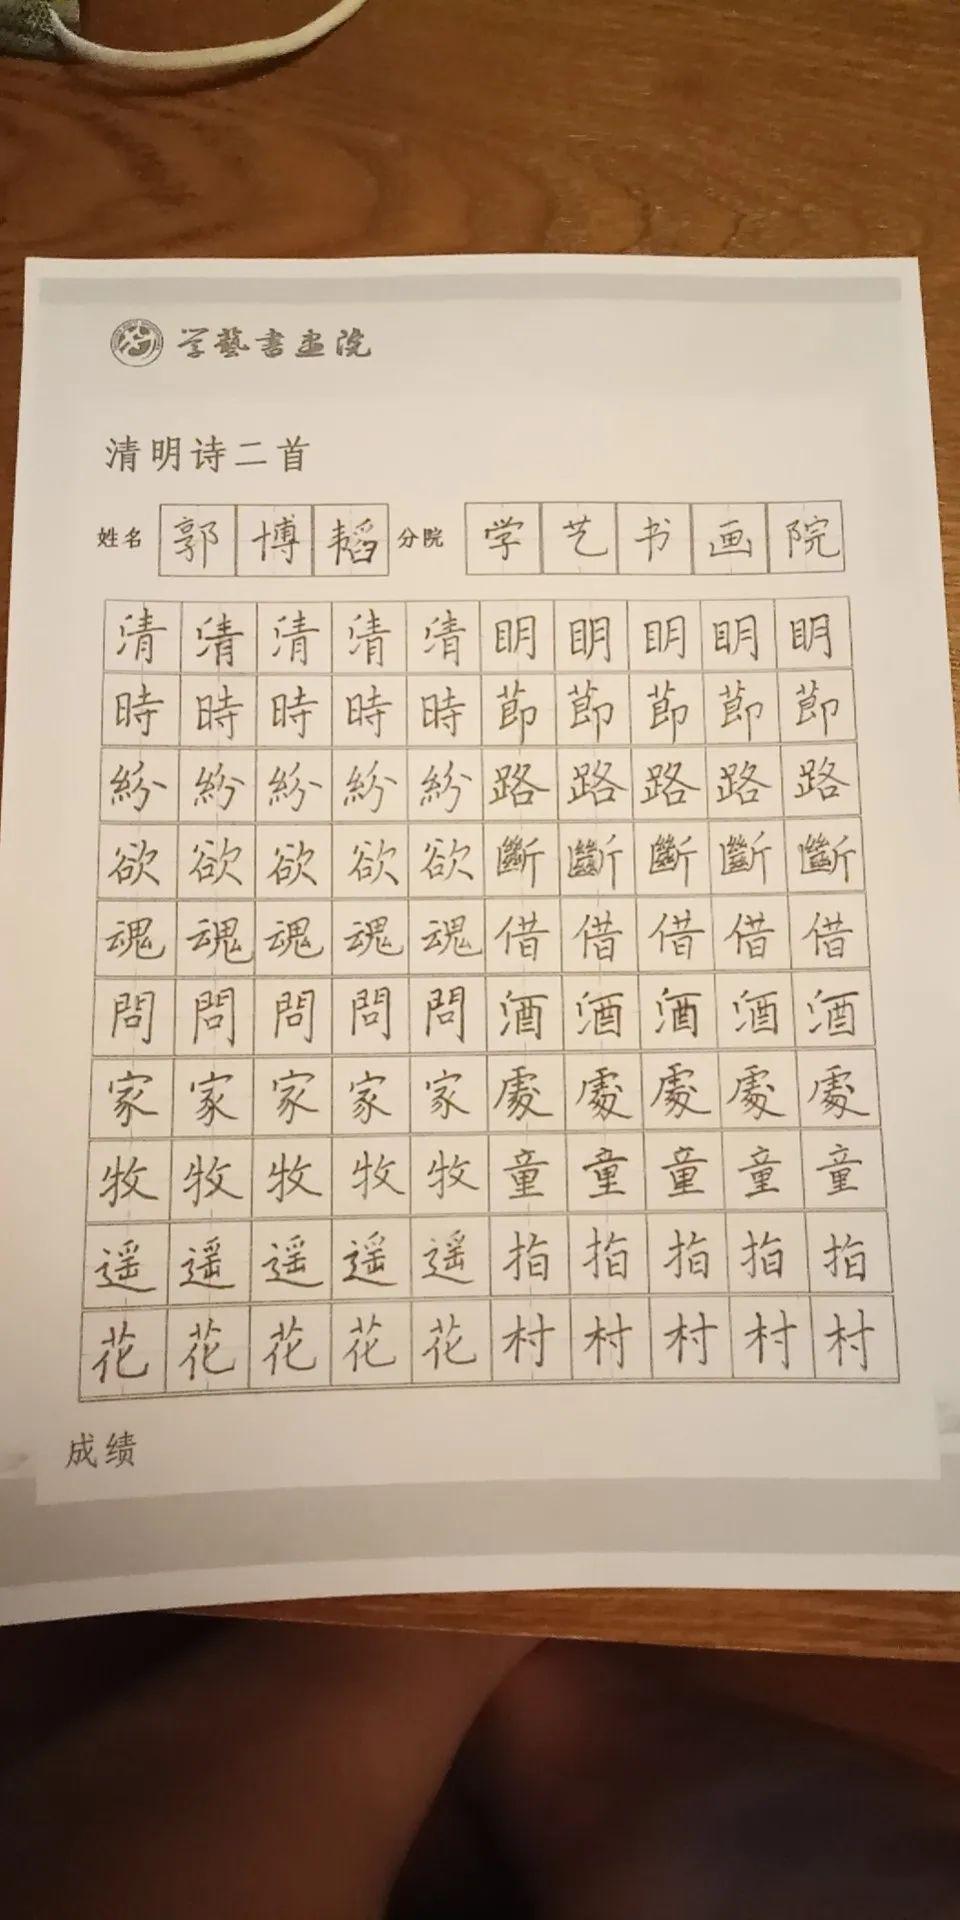 学藝書畫院
清明诗二首
姓名 郭博韬 分院 学艺书画院
清清清清清明明明明明
時時時時時節節節節節
紛紛紛紛紛路路路路路
欲欲欲欲欲斷斷斷斷斷
魂魂魂魂魂借借借借借
問問問問問酒酒酒酒酒
家家家家家處處處處處
牧牧牧牧牧童童童童童
遥遥遥遥遥指指指指指
花花花花花村村村村村
成绩